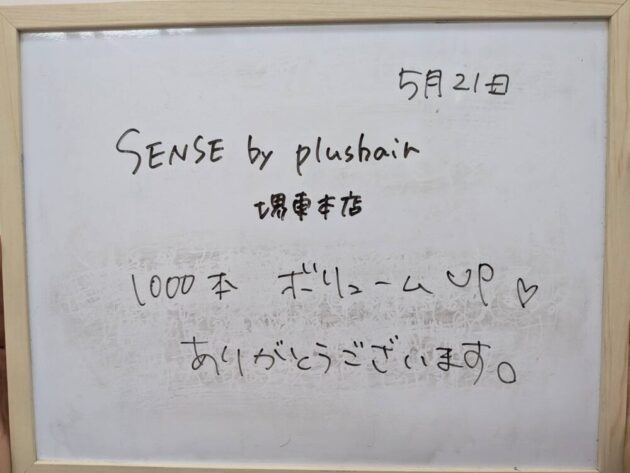 5月21日
SENSE by plushair
堺東本店
1000本 ボリュームUP♡
ありがとうございます。